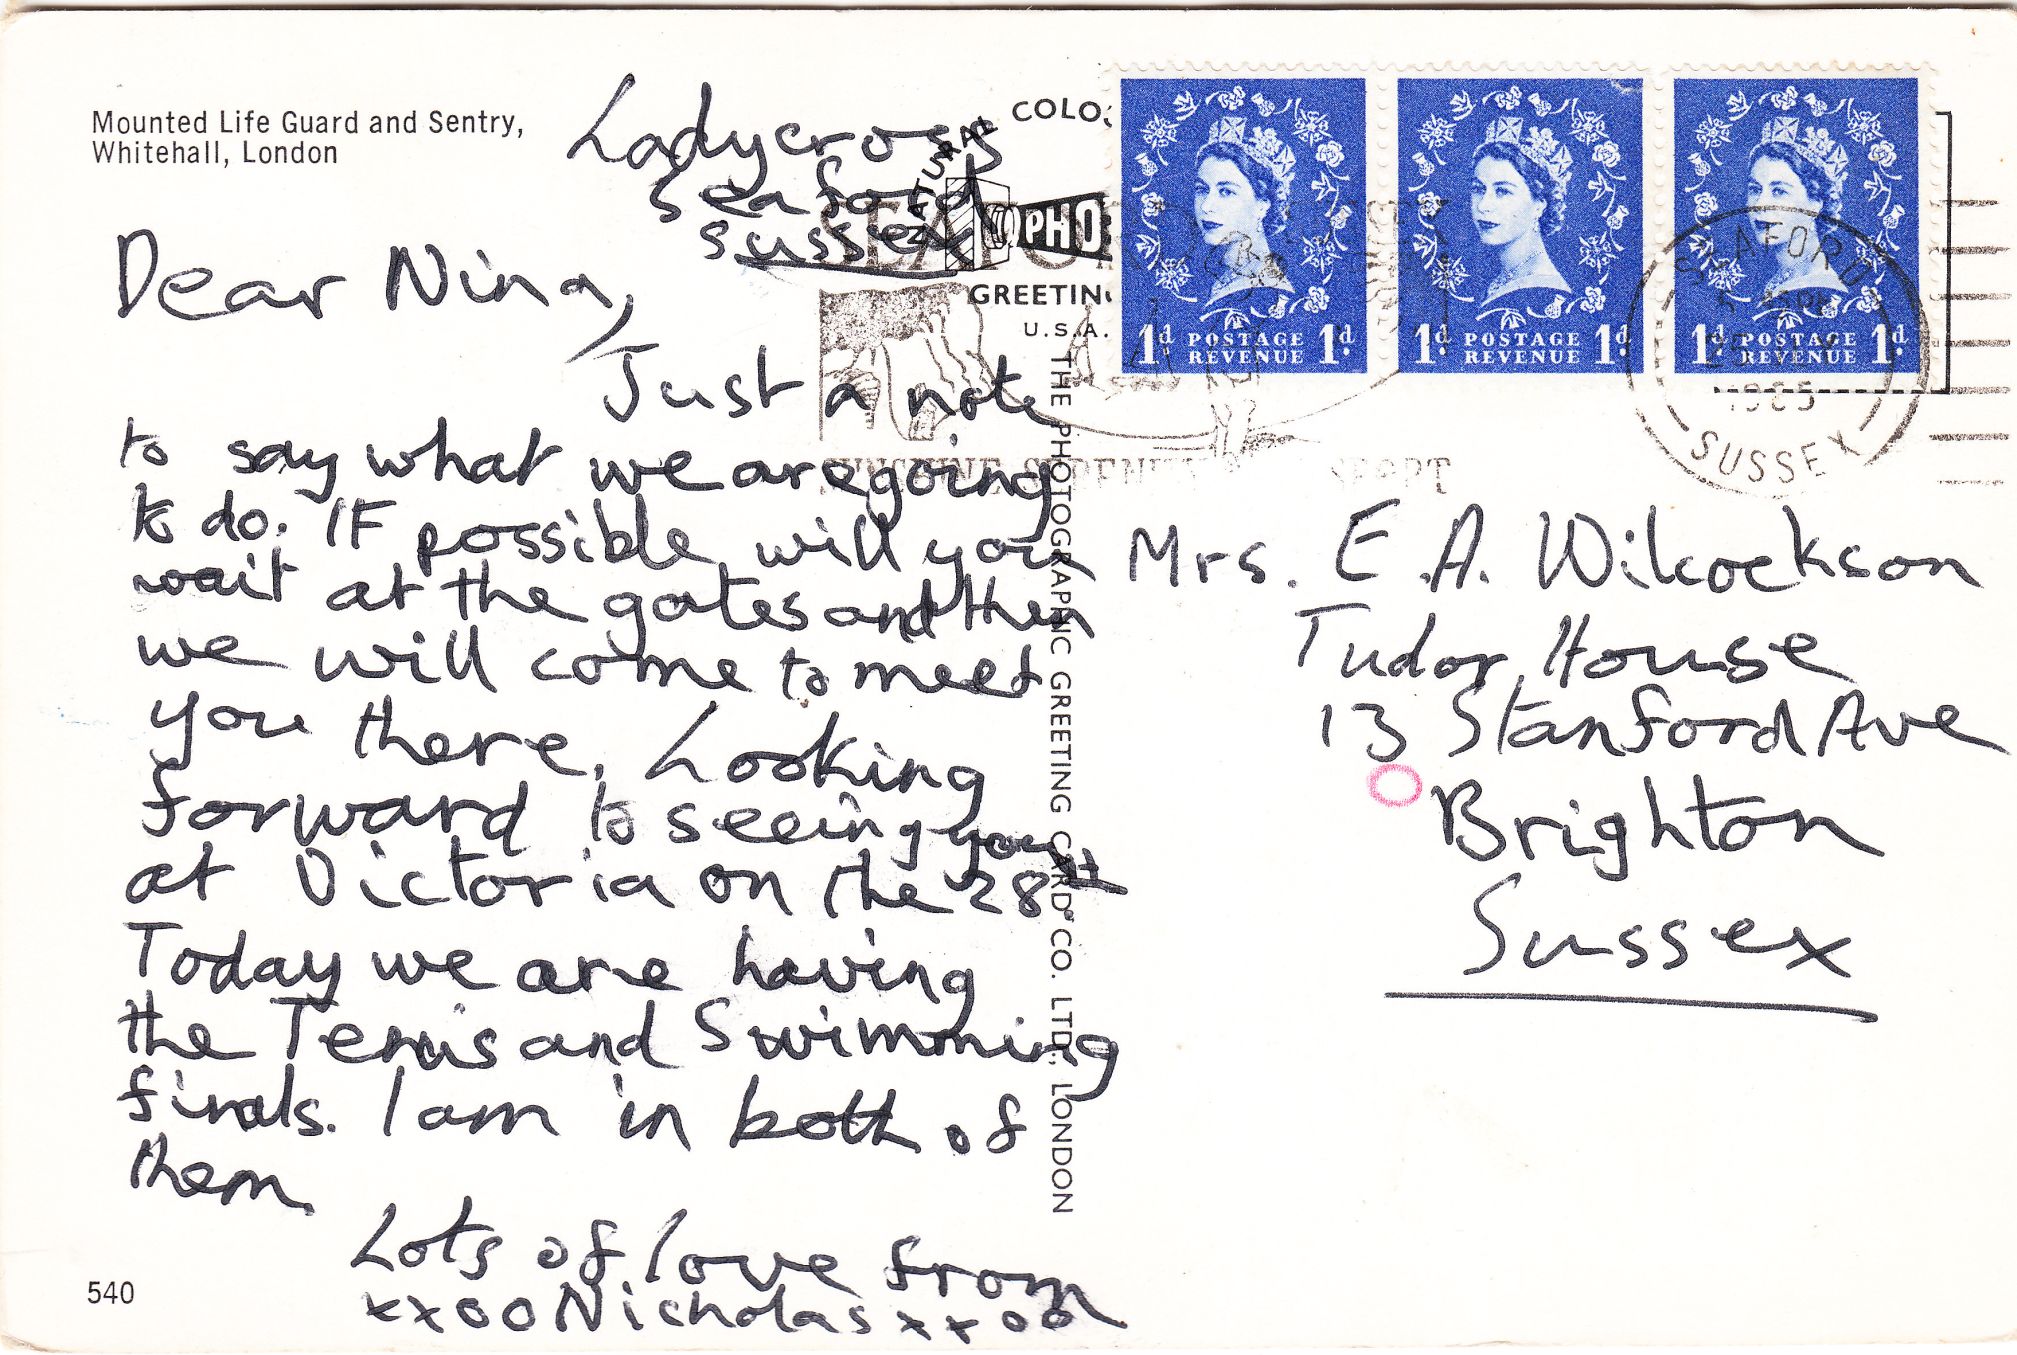 Mounted Life Guard and Sentry,
Whitehall, London
Ladycross
Seaford
Sussex
Dear Nina,
Just a note
to say what we are going
to do. If possible will you
wait at the gates and then
we will come to meet
you there. Looking
forward to seeing you
at Victoria on the 28th.
Today we are having
the Tennis and Swimming
finals. I am in both of
them.
Lots of love from
xxooNicholasxxoo
540
NATURAL
COLO
PHO
GREETIN
U.S.A.
THE PHOTOGRAPHIC GREETING CARD CO. LTD., LONDON
1d POSTAGE REVENUE 1d
1d POSTAGE REVENUE 1d
1d POSTAGE REVENUE 1d
SEAFORD
1965
SUSSEX
Mrs. E.A. Wilcockson
Tudor House
13 Stanford Ave
Brighton
Sussex